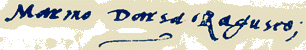 Marino Darsa Raguseo;